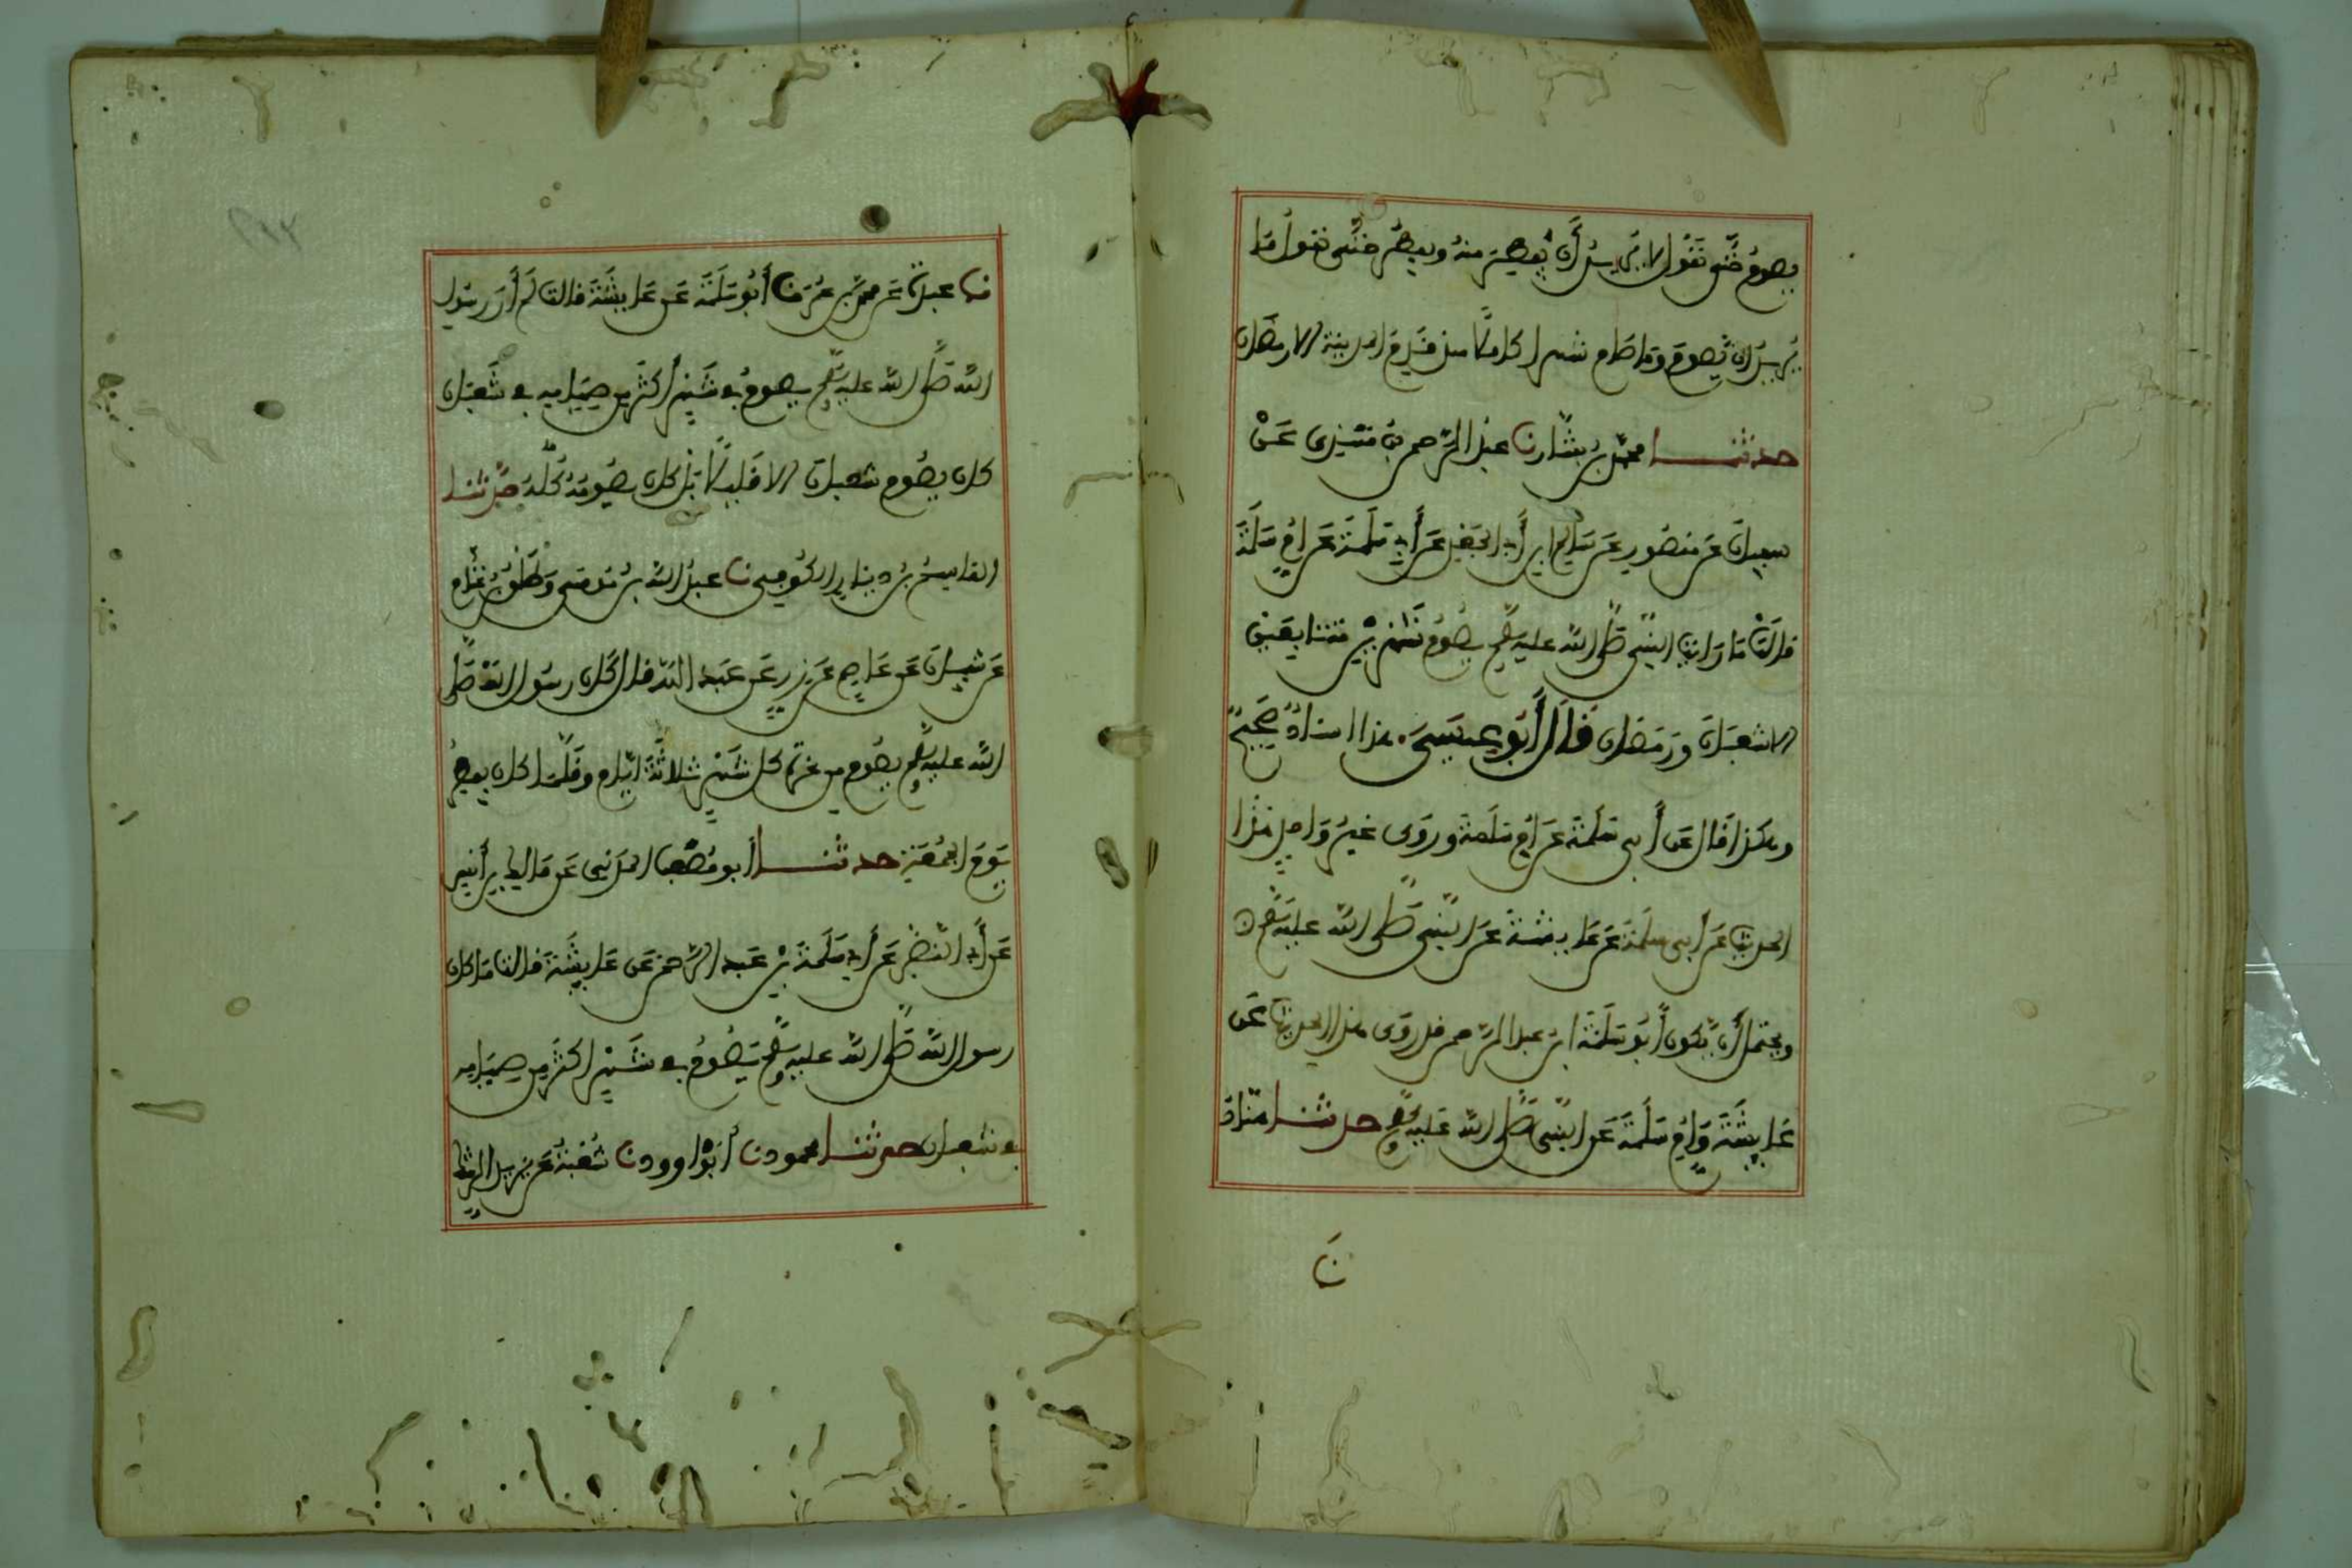 يصوم حتى نقول لا يريد أن يفطر منه ويفطر حتى نقول ما
يريد ان يصوم وما صام شهرا كاملا منذ قدم المدينة الا رمضان
حدثنا محمد بن بشار نا عبد الرحمن بن مهدي عن
سفيان عن منصور عن سالم ابن أبي الجعد عن أبي سلمة عن ام سلمة
قالت ما رايت النبي صلى الله عليه وسلم يصوم شهرين متتابعين
الا شعبان ورمضان قال أبو عيسى هذا اسناد صحيح
وهكذا قال عن أبي سلمة عن ام سلمة وروى غير واحد هذا
الحديث عن أبي سلمة عن عايشة عن النبي صلى الله عليه وسلم
ويحتمل أن يكون أبو سلمة ابن عبد الرحمن قد روى هذا الحديث عن
عايشة وام سلمة عن النبي صلى الله عليه وسلم حدثنا هناد
نا
نا عبدة عن محمد بن عمرو نا أبو سلمة عن عايشة قالت لم أر رسول
الله صلى الله عليه وسلم يصوم في شهر أكثر من صيامه في شعبان
كان يصوم شعبان الا قليلا بل كان يصومه كله حدثنا
القاسم بن دينار الكوفي نا عبيد الله بن موسى وطلق بن غنام
عن شيبان عن عاصم عن زر عن عبد الله قال كان رسول الله صلى
الله عليه وسلم يصوم من غرة كل شهر ثلاثة ايام وقلما كان يفطر
يوم الجمعة حدثنا أبو مصعب المدني عن مالك بن أنس
عن أبي النضر عن أبي سلمة بن عبد الرحمن عن عايشة قالت ما كان
رسول الله صلى الله عليه وسلم يصوم في شهر اكثر من صيامه
في شعبان حدثنا محمود نا أبو داوود نا شعبة عن يزيد الرشك